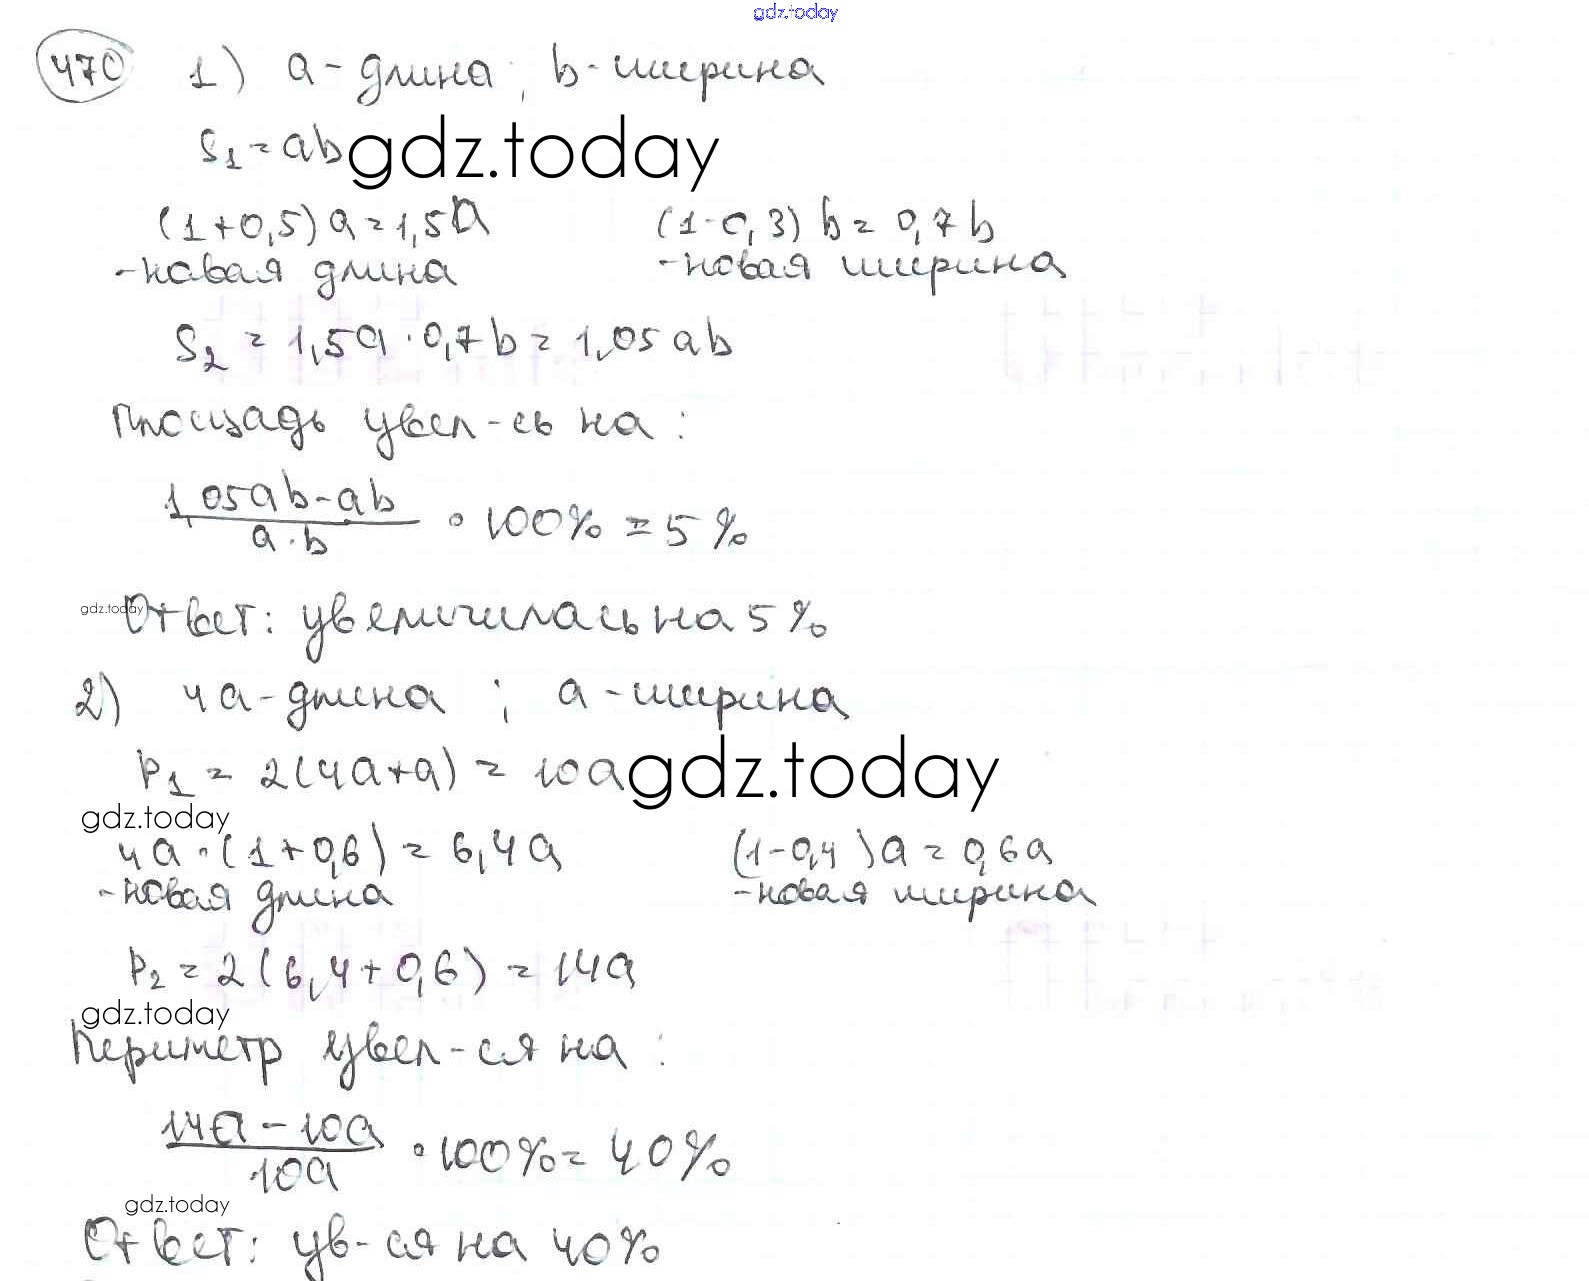 gdz.today
470 1) a - длина ; b - ширина
S₁ = ab gdz.today
(1+0,5) a = 1,5a (1-0,3) b = 0,7b
- новая длина - новая ширина
S₂ = 1,5a · 0,7b = 1,05ab
Площадь увел-сь на :
1,05ab - ab / a · b · 100% = 5%
gdz.today
Ответ: увеличилась на 5%
2) 4a - длина ; a - ширина
P₁ = 2(4a+a) = 10a gdz.today
gdz.today
4a · (1+0,6) = 6,4a (1-0,4)a = 0,6a
- новая длина - новая ширина
P₂ = 2(6,4+0,6) = 14a
gdz.today
Периметр увел-ся на :
14a - 10a / 10a · 100% = 40%
gdz.today
Ответ: ув-ся на 40%